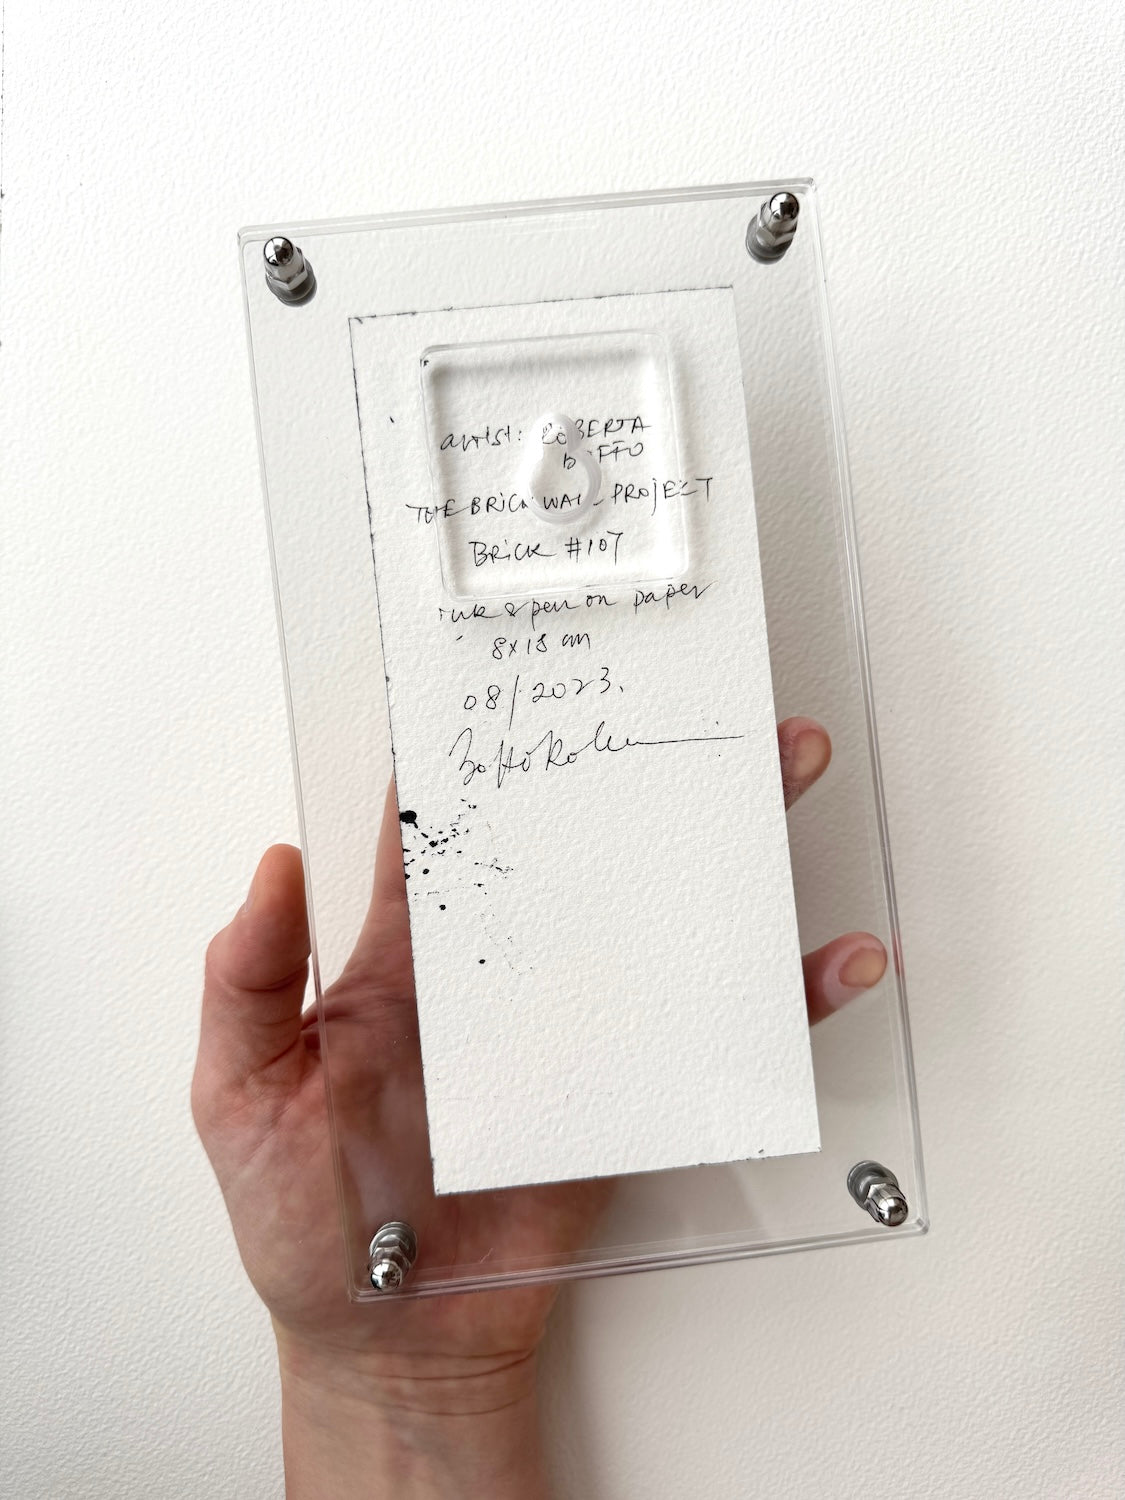 artist: ROBERTA
BOFFO
THE BRICK WALL PROJECT
BRICK #107
ink & pen on paper
8x18 cm
08/2023.